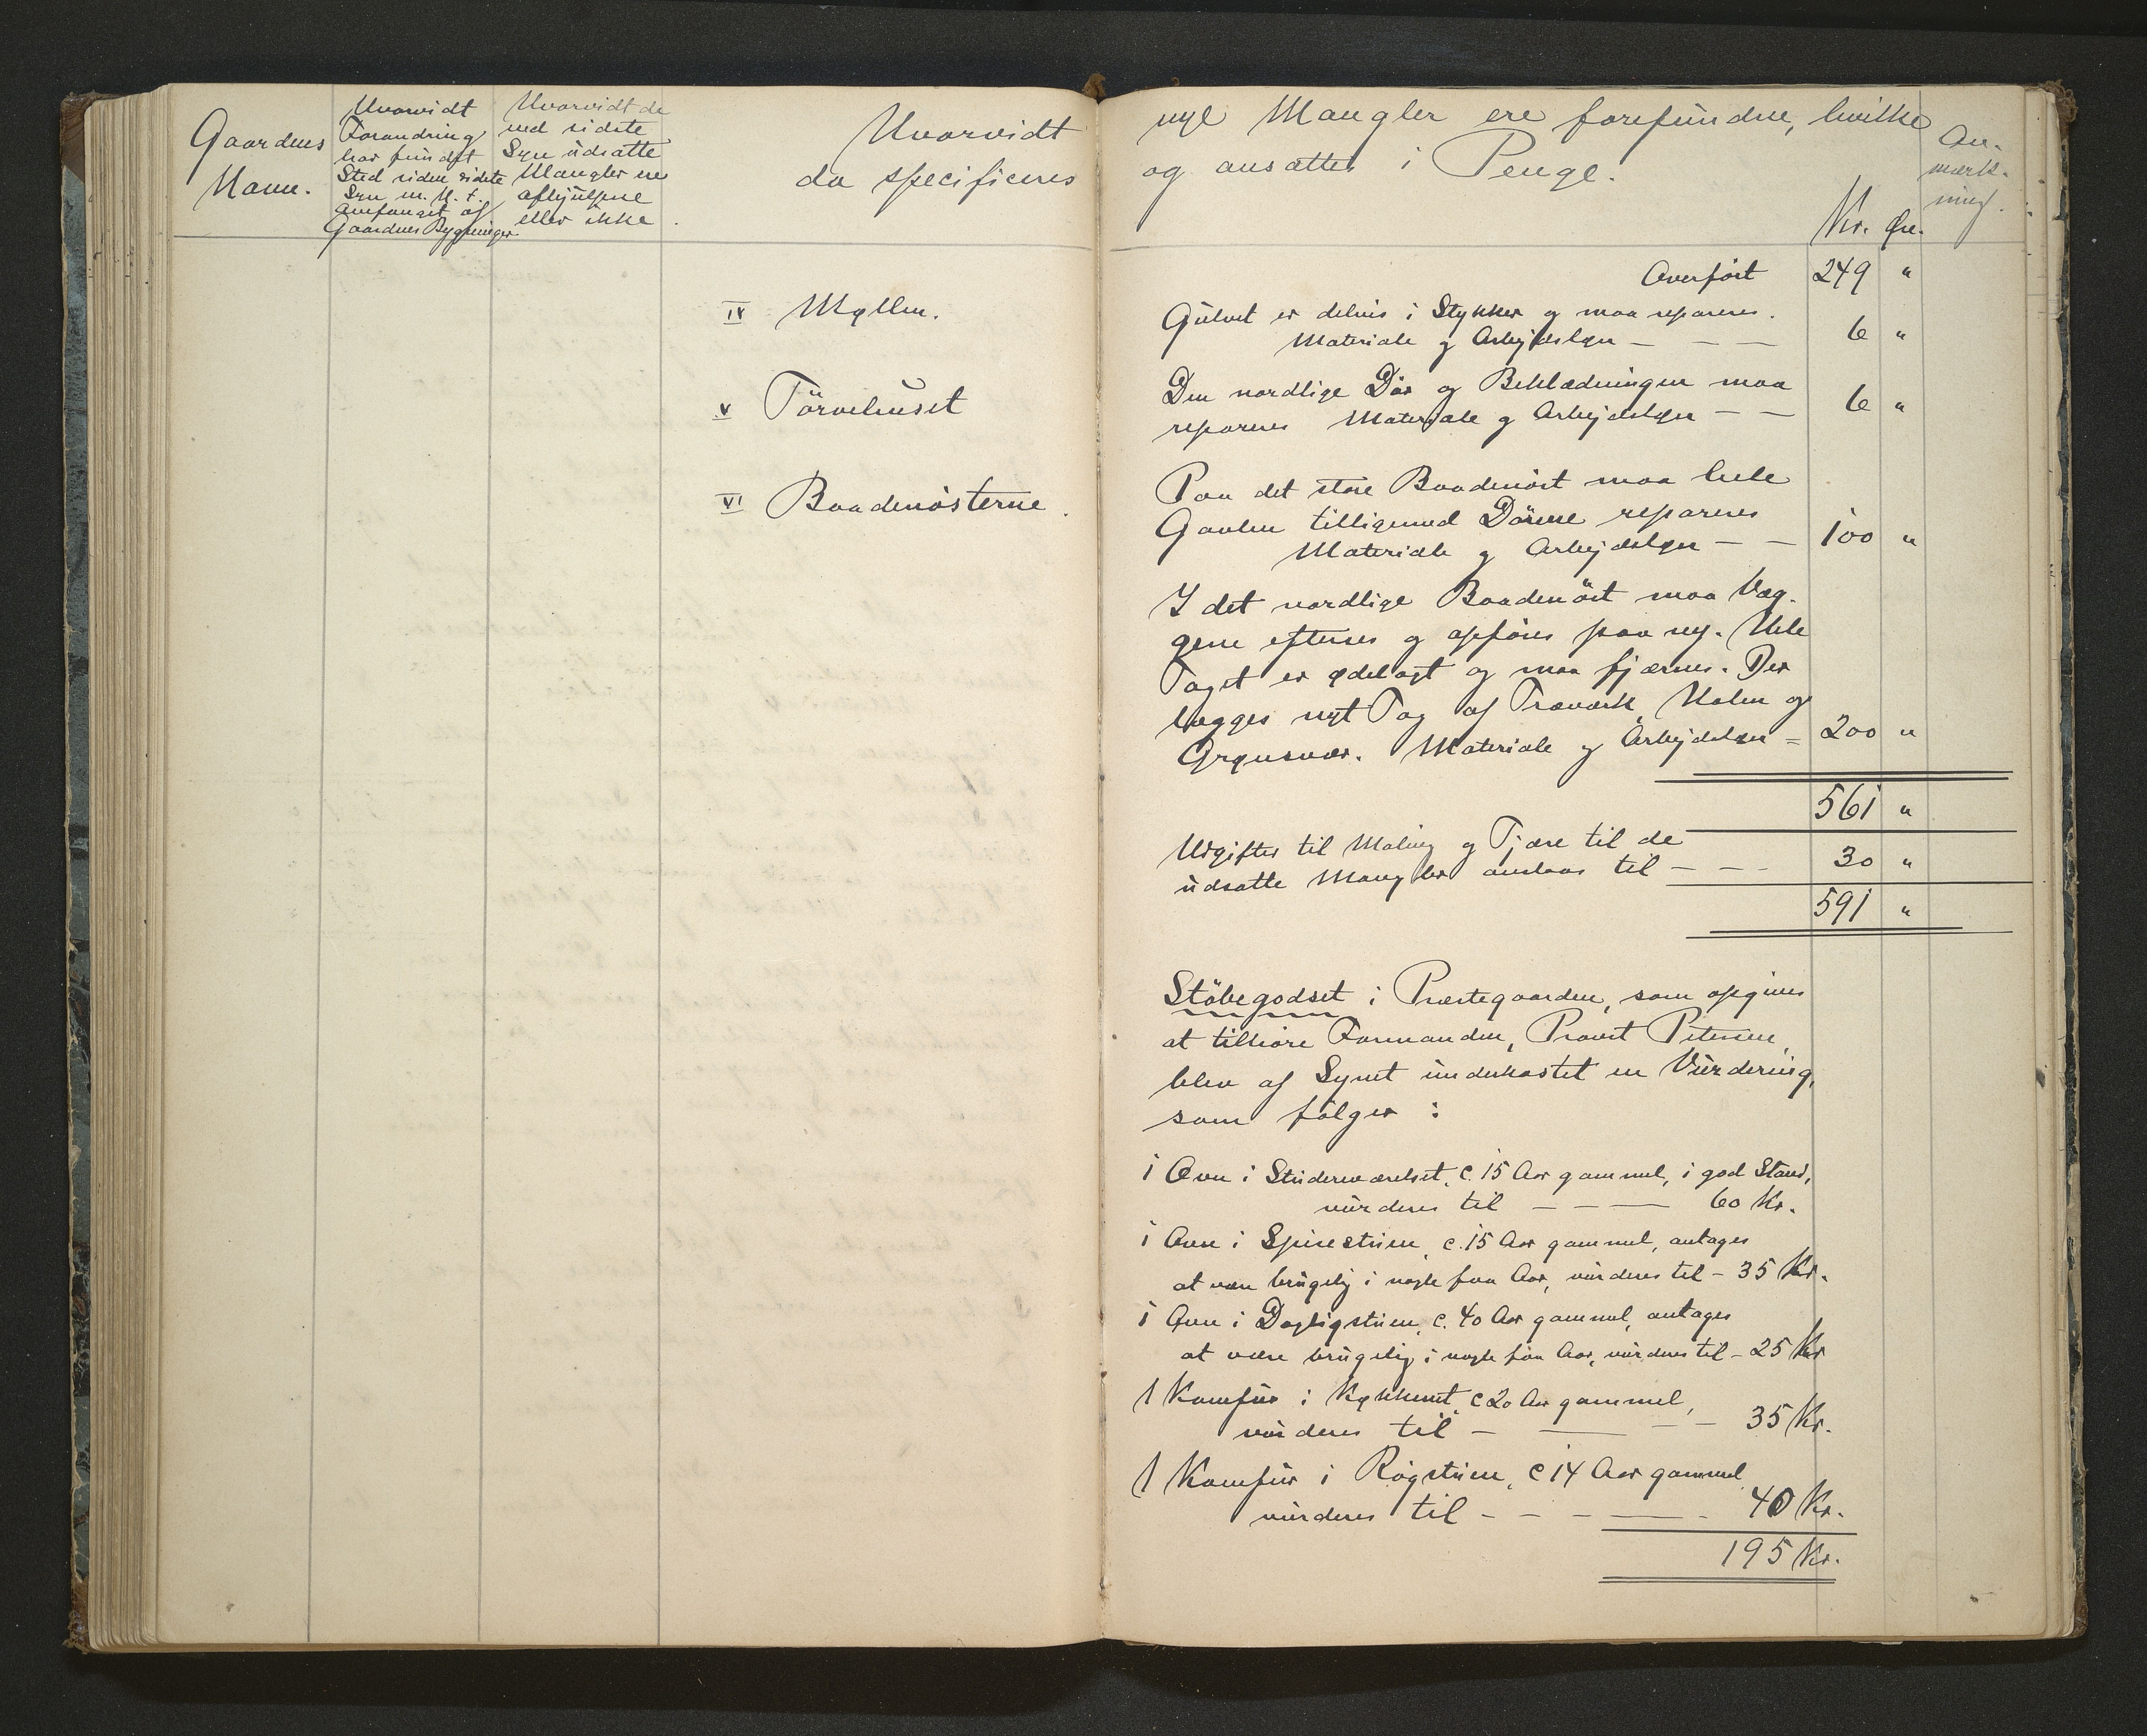 Gaardens
Navn.
Hvorvidt
Forandring
har fundet
Sted siden sidste
Syn m. H. t.
Omfanget af
Gaardens Bygninger
Hvorvidt de
ved sidste
Syn udsatte
Mangler ere
afhjulpne
eller ikke.
Hvorvidt
da specificeres
IV Møllen.
V Törvehuset
VI Baadenösterne.
nye Mangler ere forefundne, hvilke
og ansættes i Penge.
An-
mærk-
ning.
Kr. Øre.
Overført 249 "
Gulvet er delvis i Stykker og maa repareres.
Materiale og Arbejdsløn — — — 6 "
Den nordlige Dör og Beklædningen maa
repareres Materiale og Arbejdsløn — — 6 "
Paa det store Baadenöst maa hele
Gavlen tilligemed Dörene repareres
Materiale og Arbejdsløn — — 100 "
I det nordlige Baadenöst maa Væg-
gene efterses og opföres paa ny. Hele
Taget er ødelagt og maa fjærnes. Der
lægges nyt Tag af Træværk, Halm og
Grønsvær. Materiale og Arbejdsløn = 200 "
561 "
Udgifter til Maling og Tjære til de
udsatte Mangler anslaas til — — - 30 "
591 "
Stöbegodset i Præstegaarden, som opgives
at tilhöre Formanden, Provst Petersen,
blev af Synet underkastet en Vurdering,
som fölger:
1 Ovn i Studereværelset, c. 15 Aar gammel, i god Stand,
vurderes til — — — 60 Kr.
1 Ovn i Spisestuen, c. 15 Aar gammel, antages
at være brugelig i nogle faa Aar, vurderes til - 35 Kr.
1 Ovn i Dagligstuen, c. 40 Aar gammel, antages
at være brugelig i nogle faa Aar, vurderes til - 25 Kr
1 Komfur i Køkkenet, c 20 Aar gammel,
vurderes til - — — - 35 Kr.
1 Komfur i Rögstuen, c 14 Aar gammel,
vurderes til - - - — - 40 Kr.
195 Kr.